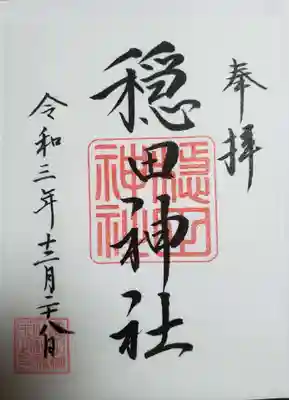 奉拝
穏田神社
穏田神社
令和三年十二月二十八日